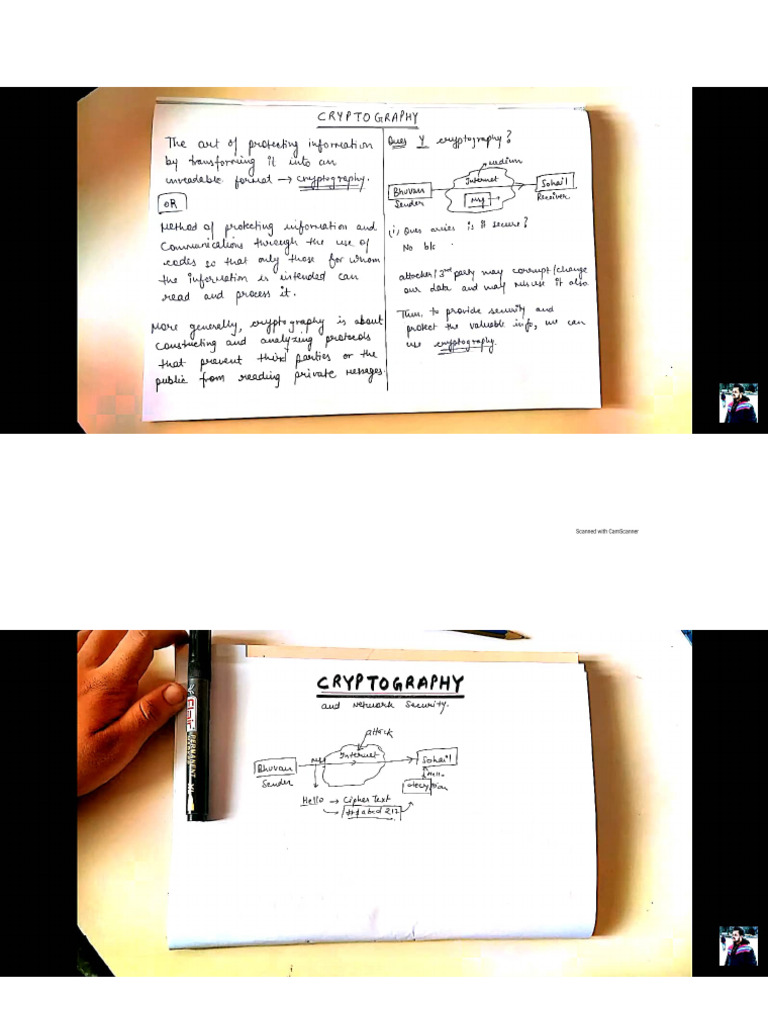 CRYPTOGRAPHY
The art of protecting information
by transforming it into an
unreadable format → cryptography.
OR
Method of protecting information and
Communications through the use of
codes so that only those for whom
the information is intended can
read and process it.
More generally, cryptography is about
constructing and analyzing protocols
that prevent third parties or the
public from reading private messages.
Ques Y cryptography?
medium
Internet
Bhuvan
Sender
Msg
Sohail
Receiver
(i) Ques arries is it secure?
No b/c
attacker/3rd party may corrupt/change
our data and may misuse it also
Thus. to provide security and
protect the valuable info, we can
use cryptography.
Scanned with CamScanner
CRYPTOGRAPHY
and Network Security.
attack
Internet
Bhuvan
Sender
Msg
Sohail
Hello
decryption
Hello → Cipher Text
PERMANENT